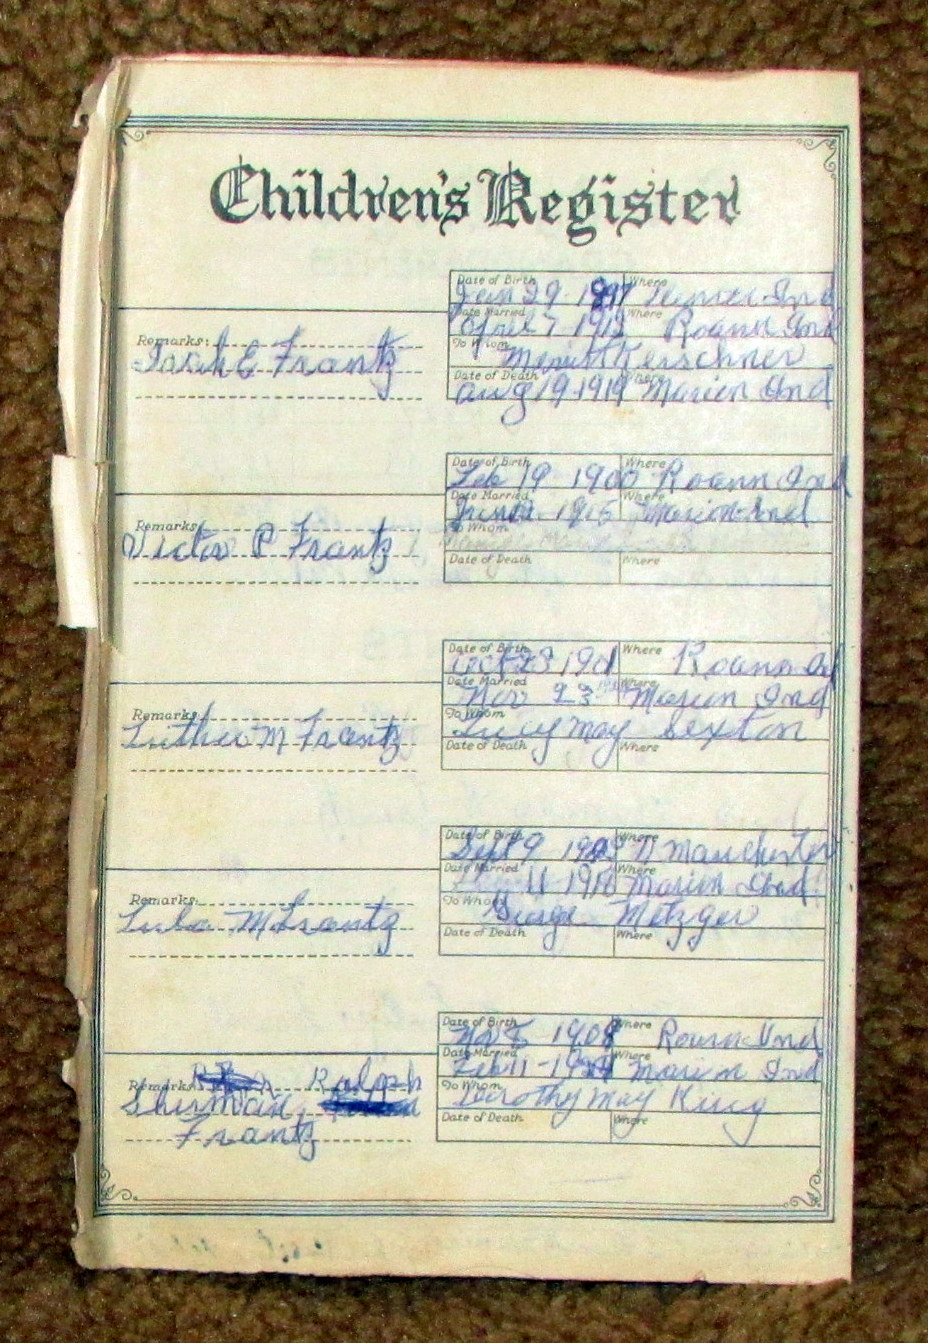 Children's Register
Date of Birth Where
Jan 29-1897 Ind
Date Married Where
April 7-1912 Roann Ind
Remarks:
To Whom
E Frantz
Kerschner
Date of Death Where
Aug 19 1919 Marion Ind
Date of Birth Where
Feb 19 1900 Roann Ind
Date Married Where
1915 Marion Ind
Remarks: To Whom
Victor P Frantz
Date of Death Where
Date of Birth Where
Oct 23 1901 Roann Ind
Date Married Where
Nov 23 Marion Ind
Remarks: To Whom
Luther M Frantz Lucy May Sexton
Date of Death Where
Date of Birth Where
Sept 9 N Manchester
Date Married Where
11 1916 Marion Ind
Remarks: To Whom
Lula M Frantz George Metzger
Date of Death Where
Date of Birth Where
Nov 5 1908 Roann Ind
Date Married Where
Feb 11 Marion Ind
Remarks: Ralph To Whom
Sherman Dorothy May King
Frantz
Date of Death Where